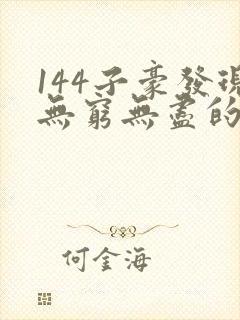 144子豪發現
無窮無盡的
何金海